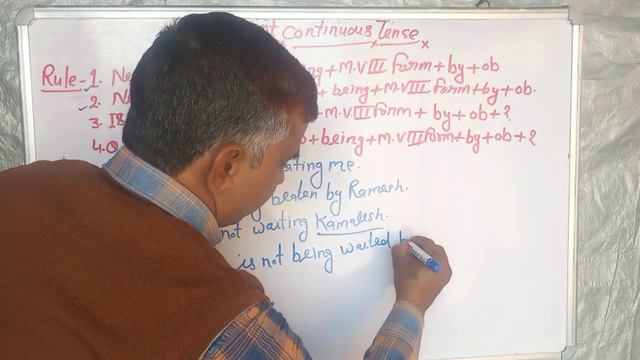 Continuous Tense
Rule-1. Ne +M.V III form + by + ob
2. Ne + being + M.V III form + by + ob.
3. Is M.V III form + by + ob + ?
4. being + M.V III form + by + ob + ?
ating me.
beaten by Ramesh.
not waiting Kamalesh.
is not being waited b